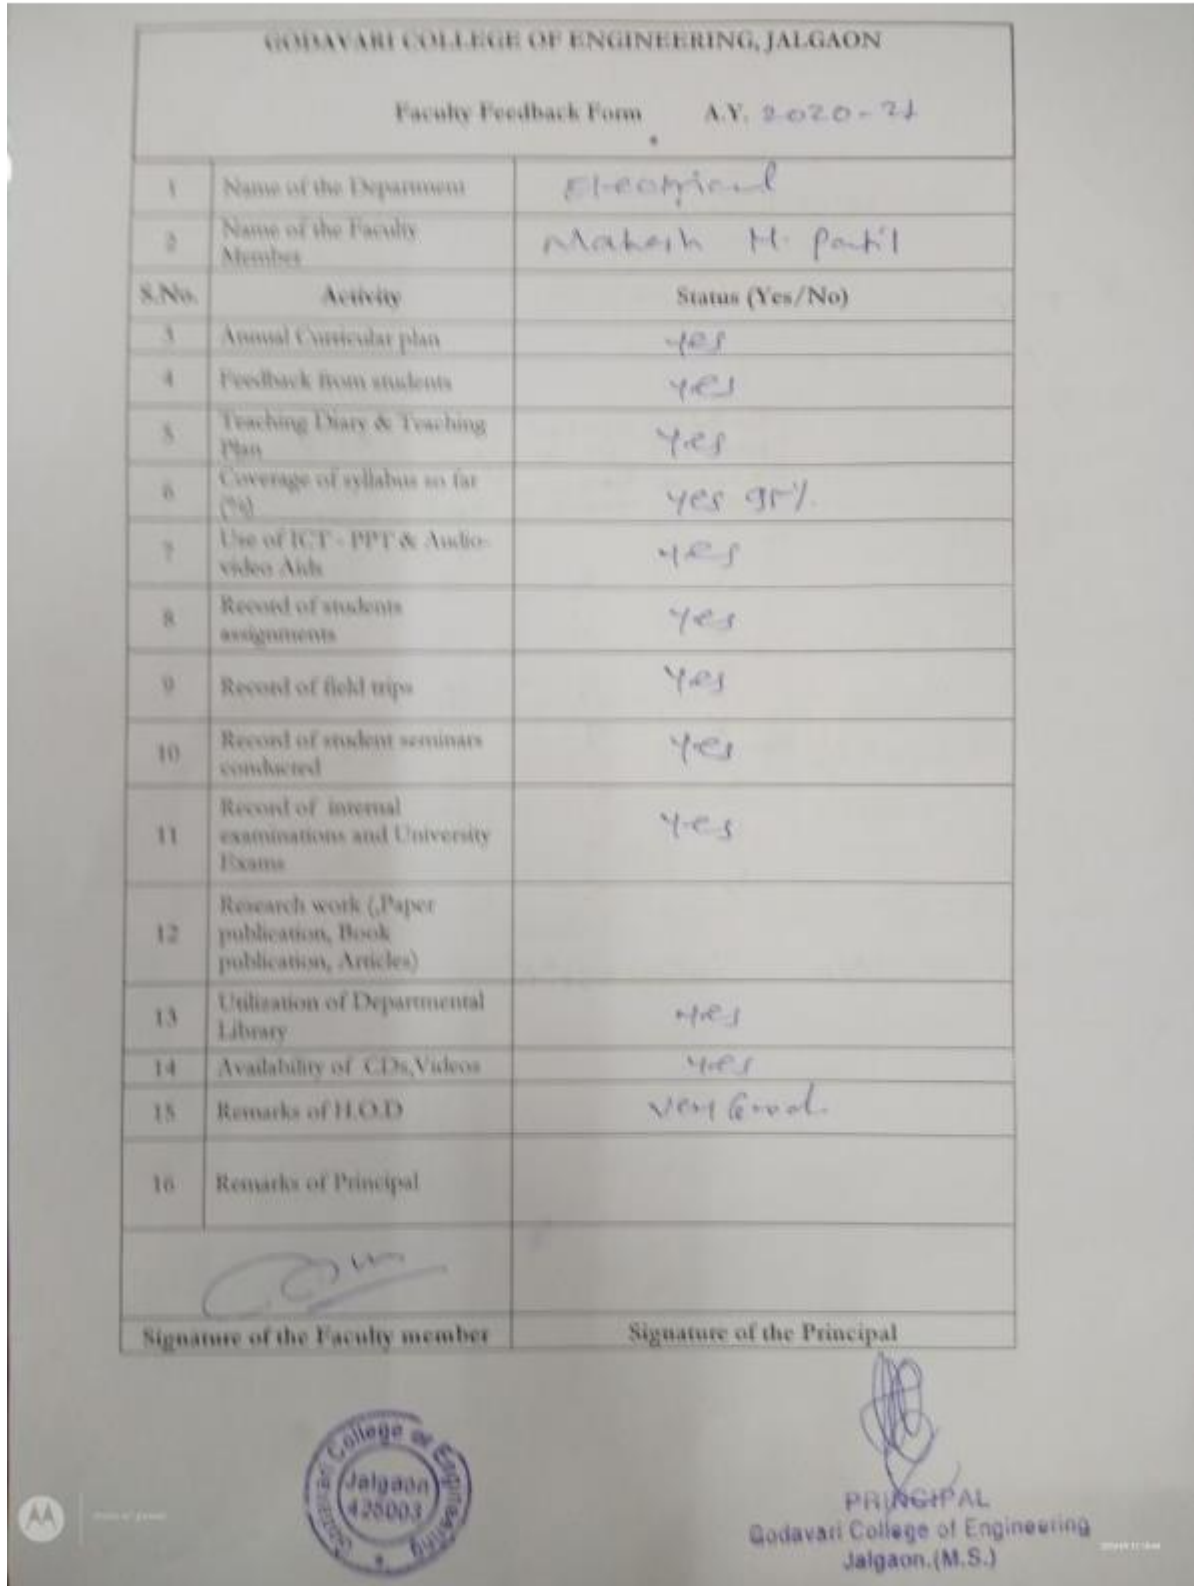 GODAVARI COLLEGE OF ENGINEERING, JALGAON
Faculty Feedback Form A.Y. 2020-21
1 Name of the Department Electrical
2 Name of the Faculty Member Mahesh M. Patil
S.No. Activity Status (Yes/No)
3 Annual Curricular plan yes
4 Feedback from students yes
5 Teaching Diary & Teaching Plan Yes
6 Coverage of syllabus so far (%) yes 95%
7 Use of ICT - PPT & Audio-video Aids yes
8 Record of students assignments Yes
9 Record of field trips Yes
10 Record of student seminars conducted Yes
11 Record of internal examinations and University Exams Yes
12 Research work (,Paper publication, Book publication, Articles)
13 Utilization of Departmental Library yes
14 Availability of CDs,Videos yes
15 Remarks of H.O.D Very Good.
16 Remarks of Principal
Signature of the Faculty member Signature of the Principal
Godavari College of Engineering
Jalgaon
425003
PRINCIPAL
Godavari College of Engineering
Jalgaon.(M.S.)